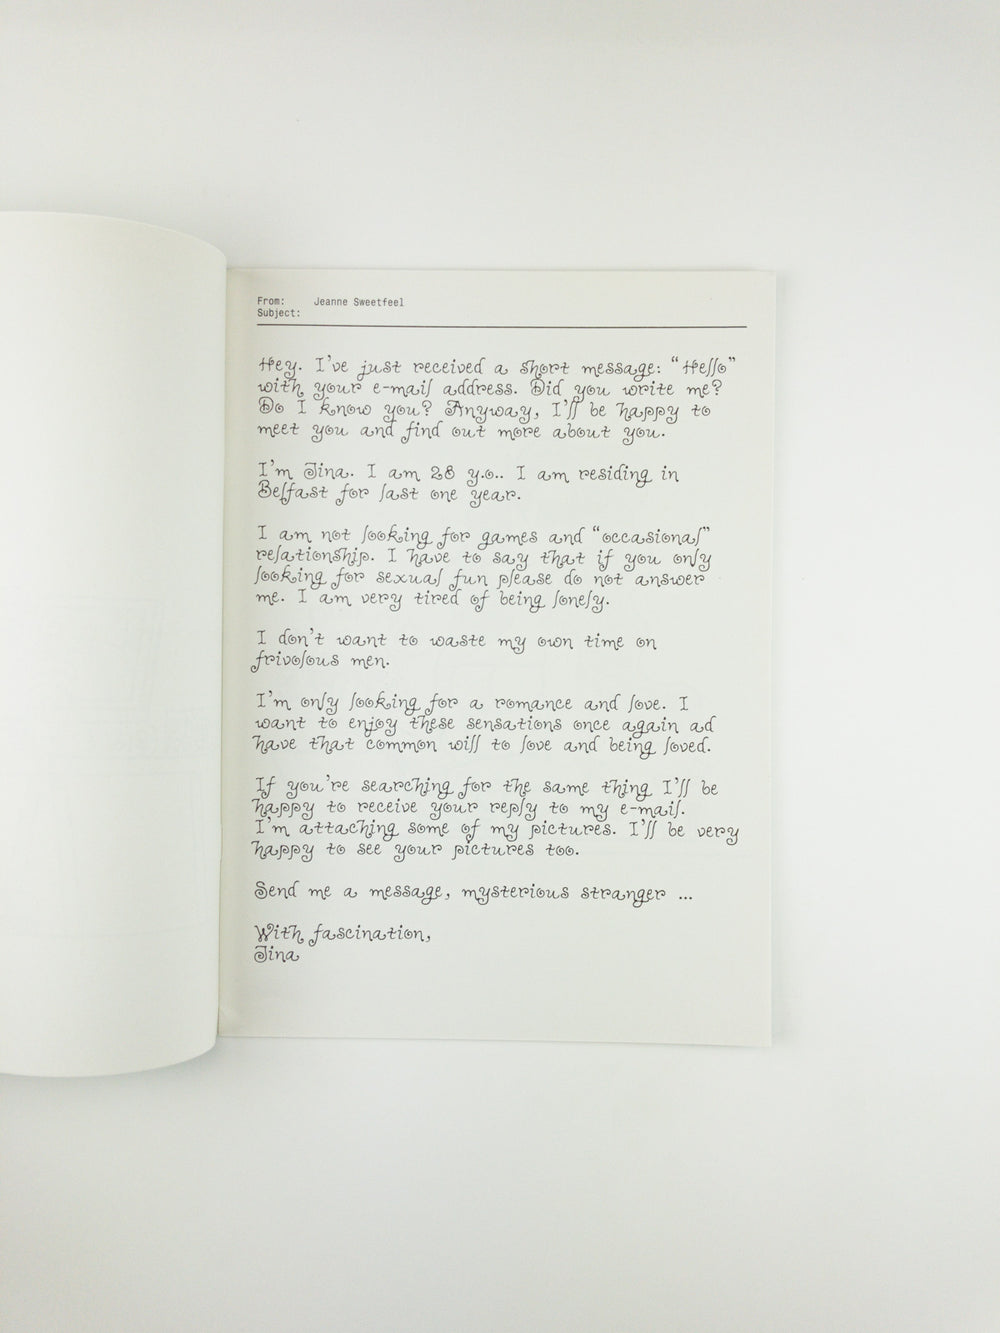 From: Jeanne Sweetfeel
Subject:
Hey. I've just received a short message: “Hello”
with your e-mail address. Did you write me?
Do I know you? Anyway, I'll be happy to
meet you and find out more about you.
I'm Tina. I am 28 y.o.. I am residing in
Belfast for last one year.
I am not looking for games and “occasional”
relationship. I have to say that if you only
looking for sexual fun please do not answer
me. I am very tired of being lonely.
I don't want to waste my own time on
frivolous men.
I'm only looking for a romance and love. I
want to enjoy these sensations once again ad
have that common will to love and being loved.
If you're searching for the same thing I'll be
happy to receive your reply to my e-mail.
I'm attaching some of my pictures. I'll be very
happy to see your pictures too.
Send me a message, mysterious stranger ...
With fascination,
Tina